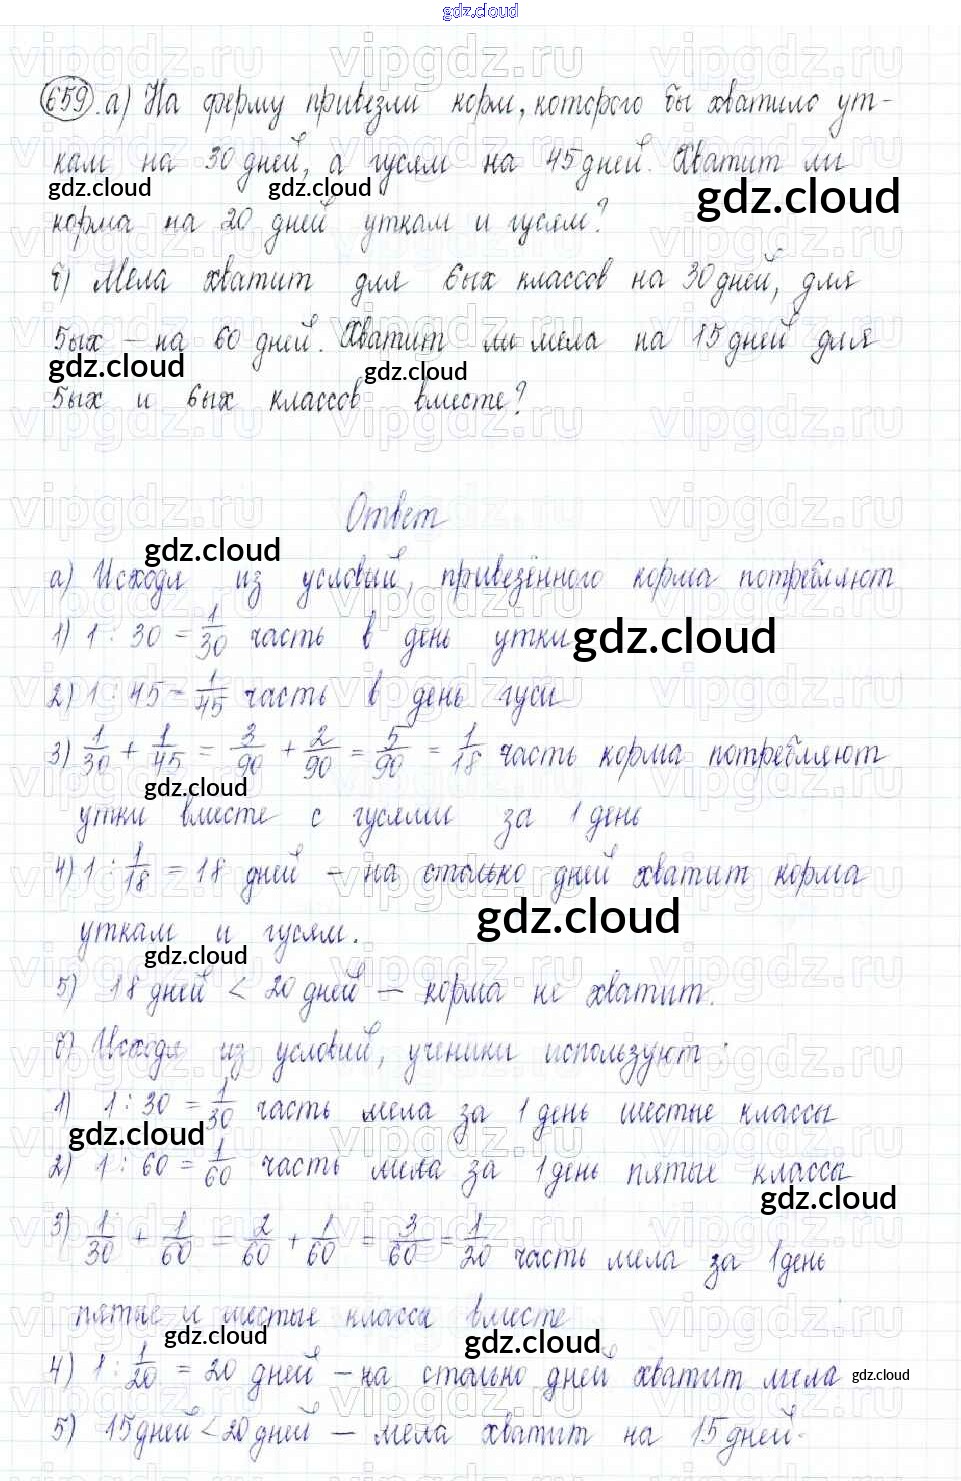 gdz.cloud
659. а) На ферму привезли корм, которого бы хватило ут-
кам на 30 дней, а гусям на 45 дней. Хватит ли
корма на 20 дней уткам и гусям?
б) Мела хватит для 6ых классов на 30 дней, для
5ых – на 60 дней. Хватит ли мела на 15 дней для
5ых и 6ых классов вместе?
Ответ
а) Исходя из условый, привезённого корма потребляют
1) 1 : 30 = 1/30 часть в день утки
2) 1 : 45 = 1/45 часть в день гуси
3) 1/30 + 1/45 = 3/90 + 2/90 = 5/90 = 1/18 часть корма потребляют
утки вместе с гусями за 1 день
4) 1 : 1/18 = 18 дней – на столько дней хватит корма
уткам и гусям.
5) 18 дней < 20 дней – корма не хватит.
б) Исходя из условий, ученики используют :
1) 1 : 30 = 1/30 часть мела за 1 день шестые классы
2) 1 : 60 = 1/60 часть мела за 1 день пятые классы
3) 1/30 + 1/60 = 2/60 + 1/60 = 3/60 = 1/20 часть мела за 1 день
пятые и шестые классы вместе
4) 1 : 1/20 = 20 дней – на столько дней хватит мела
5) 15 дней < 20 дней – мела хватит на 15 дней.